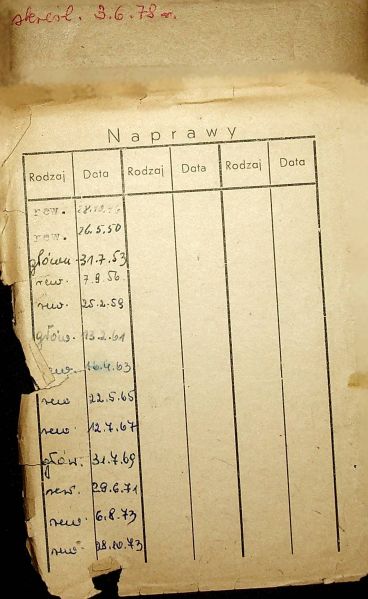 skreśl. 3.6.78 r.
Naprawy
Rodzaj Data Rodzaj Data Rodzaj Data
rew.
rew. 26.5.50
główna 31.7.53
rew. 7.9.56
rew. 25.2.59
głów. 13.2.61
rew. 16.4.63
rew 22.5.65
rew. 12.7.67
głów. 31.7.69
rew. 29.6.71
rew. 6.8.73
rew. 28.10.73